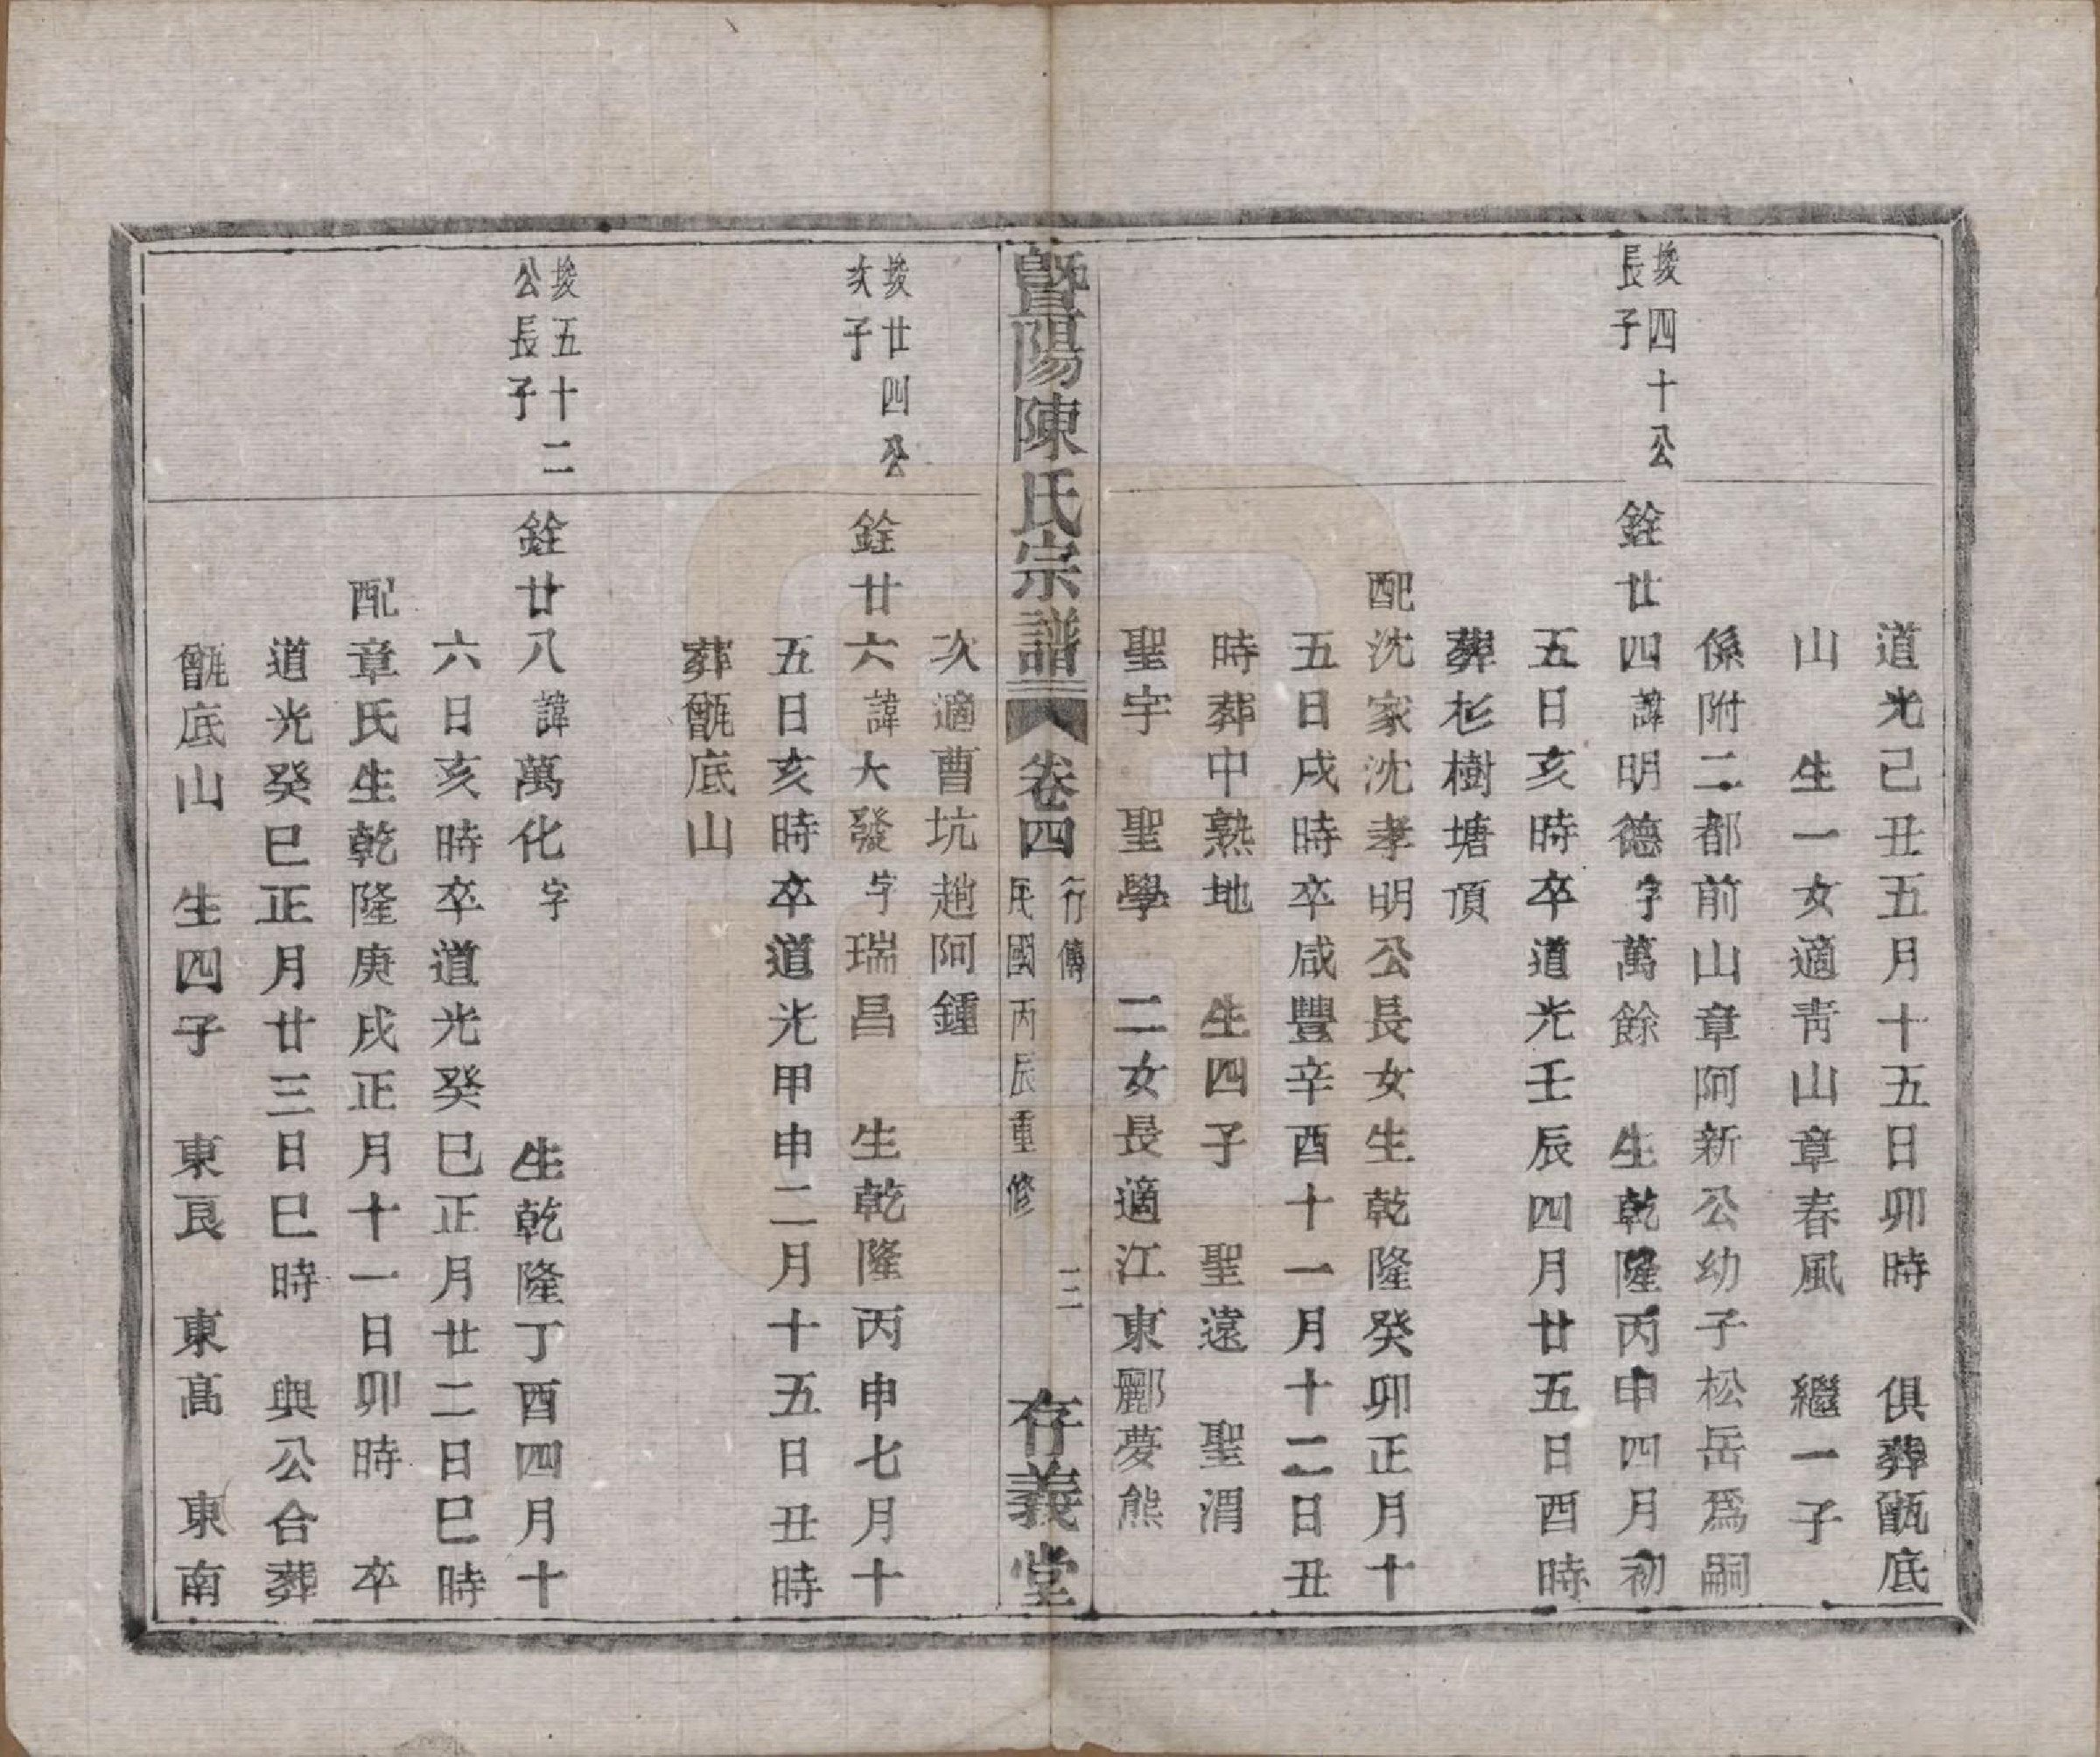 道光己丑五月十五日卯時 俱葬甑底
山 生一女適靑山章春風 繼一子
係附二都前山章阿新公幼子松岳爲嗣
埈四十公
長子
銓廿四諱明德字萬餘 生乾隆丙申四月初
五日亥時卒道光壬辰四月廿五日酉時
葬杉樹塘頂
配沈家沈孝明公長女生乾隆癸卯正月十
五日戌時卒咸豐辛酉十一月十二日丑
時葬中熟地 生四子 聖遠 聖渭
聖宇 聖學 二女長適江東酈夢熊
暨陽陳氏宗譜 卷四 行傳 民國丙辰重修 三 存義堂
次適曹坑趙阿鍾
埈廿四公
次子
銓廿六諱大發字瑞昌 生乾隆丙申七月十
五日亥時卒道光甲申二月十五日丑時
葬甑底山
埈五十二
公長子
銓廿八諱萬化字 生乾隆丁酉四月十
六日亥時卒道光癸巳正月廿二日巳時
配章氏生乾隆庚戌正月十一日卯時 卒
道光癸巳正月廿三日巳時 與公合葬
甑底山 生四子 東良 東高 東南